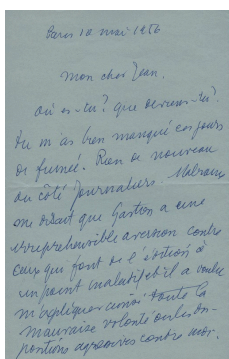 Paris 10 mai 1956
Mon cher Jean.
où es-tu? que deviens-tu?
Tu m'as bien manqué ces jours
Rien de nouveau
du côté Journaliers. Malraux
me disait que Gaston a une
irrépréhensible aversion contre
ceux qui font de l'édition à
un point maladif et il a voulu
m'expliquer ainsi toute la
mauvaise volonté
contre moi.